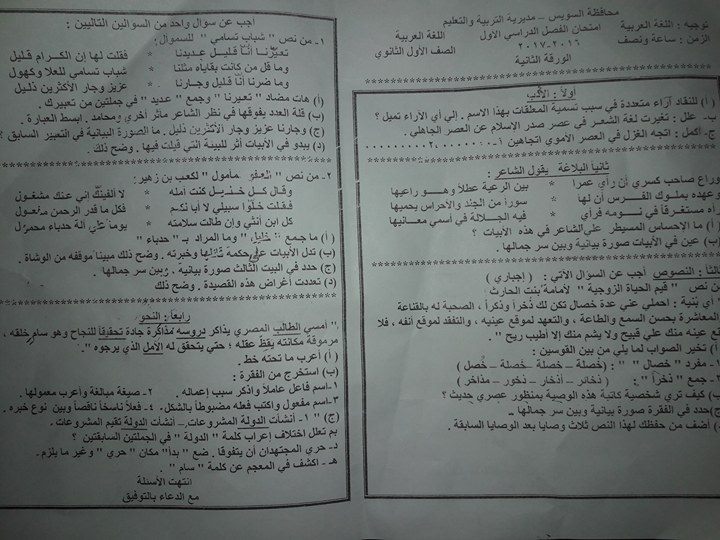 محافظة السويس – مديرية التربية والتعليم
توجيه : اللغة العربية امتحان الفصل الدراسي الأول اللغة العربية
الزمن : ساعة ونصف ٢٠١٦-٢٠١٧ الصف الأول الثانوي
الورقة الثانية
أولاً : الأدب
(أ) للنقاد آراء متعددة في سبب تسمية المعلقات بهذا الاسم . إلي أي الآراء تميل ؟
ب- علل : تغيرت لغة الشعر في عصر صدر الإسلام عن العصر الجاهلي .
ج- أكمل : اتجه الغزل في العصر الأموي اتجاهين ١- ........ ٢- ........
ثانياً البلاغة يقول الشاعر :
وراع صاحب كسري أن رأي عمرا * بين الرعية عطلاً وهــو راعيها
وعهده بملوك الفرس أن لها * سوراً من الجند والأحراس يحميها
رآه مستغرقاً في نــومه فرأي * فيه الجــلالة في أسمي معــانيها
أ) ما الإحساس المسيطر علي الشاعر في هذه الأبيات ؟
ب) عين في الأبيات صورة بيانية وبين سر جمالها .
ثالثا : النصوص أجب عن السؤال الآتي : ( إجباري )
من نص " قيم الحياة الزوجية " لأمامة بنت الحارث
أي بنية : احملي عني عدة خصال تكن لك ذُخراً وذكراً ، الصحبة له بالقناعة
المعاشرة بحسن السمع والطاعة ، والتعهد لموقع عينيه ، والتفقد لموقع أنفه ، فلا
عينه منك علي قبيح ولا يشم منك إلا أطيب ريح "
( أ ) تخير الصواب لما يلي من بين القوسين :
- مفرد " خصال " : ( خُصلة – خَصلة – خِصلة – خُصل )
- جمع " ذخراً " : ( ذخائر – أذخار – ذخور – مذاخر )
ب) كيف تري شخصية كاتبة هذه الوصية بمنظور عصري حديث ؟
(ج) حدد في الفقرة صورة بيانية وبين سر جمالها ..
د) أضف من حفظك لهذا النص ثلاث وصايا بعد الوصايا السابقة .
أجب عن سؤال واحد من السؤالين التاليين :
١- من نص " شباب تسامي " للسموأل :
تعيرنا أنا قليـل عديدنا * فقلت لها إن الكرام قليل
وما قل من كانت بقاياه مثلنا * شباب تسامى للعلا وكهول
وما ضرنا أنا قليل وجارنا * عزيز وجار الأكثرين ذليل
( أ ) هات مضاد " تعيرنا " وجمع " عديد " في جملتين من تعبيرك .
(ب) قلة العدد يفوقها في نظر الشاعر مآثر أخري ومحامد . ابسط العبارة .
(ج) وجارنا عزيز وجار الأكثرين ذليل . ما الصورة البيانية في التعبير السابق ؟
( د) يبدو في الأبيات أثر البيئة التي قيلت فيها . وضح ذلك .
٢- من نص " العفو مأمول " لكعب بن زهير:
وقال كــل خلــيل كنت آمله * لا ألفينك إني عنك مشغول
فقلت خلوا سبيلي لا أبا لكم * فكل ما قدر الرحمن مفعول
كل ابن أنثي وإن طالت سلامته * يوما علي آلة حدباء محمول
( أ ) ما جمع " خليل " وما المراد بـ " حدباء "
(ب) تدل الأبيات علي حكمة قائلها وخبرته . وضح ذلك مبينا موقفه من الوشاة .
(ج) حدد في البيت الثالث صورة بيانية ، وبين سر جمالها .
( د) تعددت أغراض هذه القصيدة . وضح ذلك
رابعاً : النحو
" أمسي الطالب المصري يذاكر دروسه مذاكرة جادة تحقيقا للنجاح وهو سام خلقه ،
مرموقة مكانته يقظ عقله ؛ حتي يتحقق له الأمل الذي يرجوه "
( أ ) أعرب ما تحته خط .
(ب) استخرج من الفقرة :
١-اسم فاعل عاملاً واذكر سبب إعماله . ٢- صيغة مبالغة وأعرب معمولها .
٣-اسم مفعول واكتب فعله مضبوطاً بالشكل. ٤- فعلاً ناسخاً ناقصاً وبين نوع خبره .
(ج) " ١- أنشأت الدولة المشروعات. – أنشأت الدولة تقيم المشروعات .
بم تعلل اختلاف إعراب كلمة " الدولة " في الجملتين السابقتين ؟
د- حري المجتهدان أن يتفوقا . ضع " بدأ" مكان " حري " وغير ما يلزم .
هـ - اكشف في المعجم عن كلمة " سام " .
انتهت الأسئلة
مع الدعاء بالتوفيق